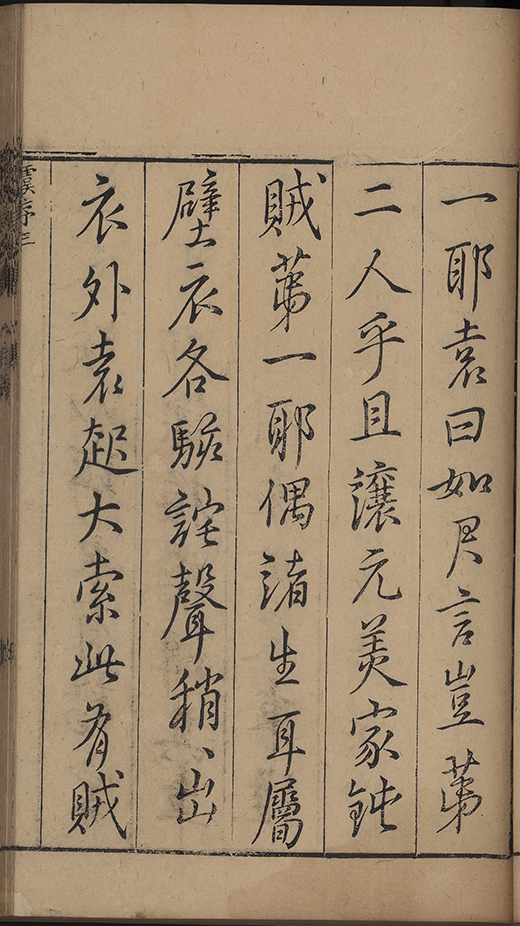 一耶袁曰如君言豈第
二人乎且讓元美家鈍
賊第一耶偶諸生耳屬
壁衣各駭詫聲稍〻出
衣外袁起大索此有賊
序三